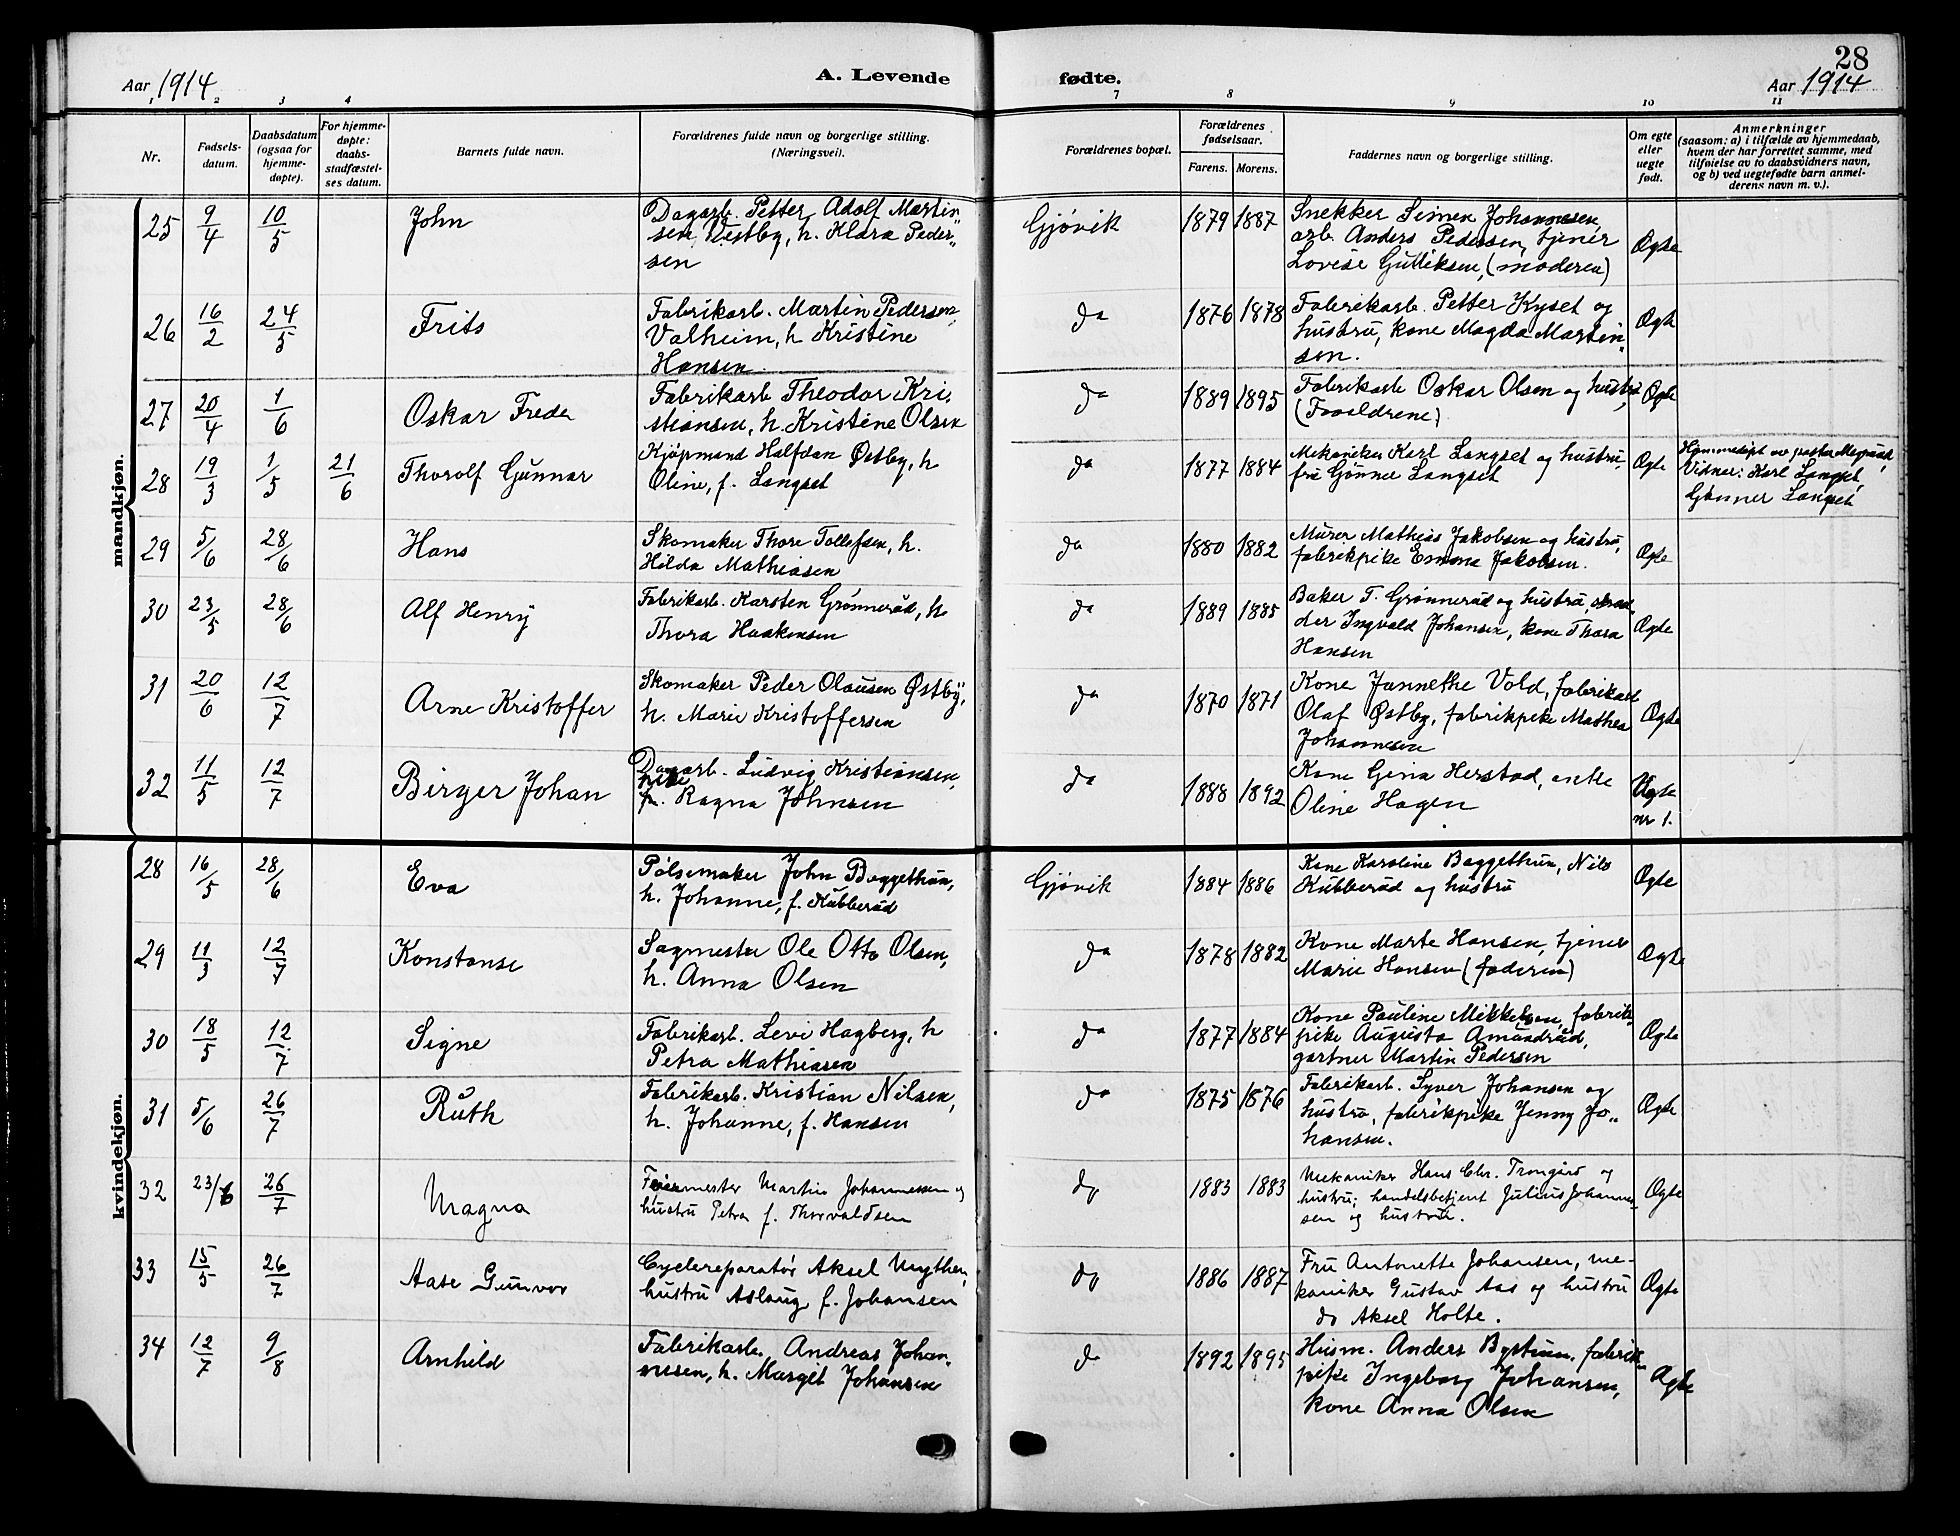 28
Aar 1914
A. Levende
fødte.
Aar 1914
1 2 3 4 7 8 9 10 11
Nr.
Fødsels-
datum.
Daabsdatum
(ogsaa for
hjemme-
døpte).
For hjemme-
døpte:
daabs-
stadfæstel-
ses datum.
Barnets fulde navn.
Forældrenes fulde navn og borgerlige stilling.
(Næringsvei).
Forældrenes bopæl.
Forældrenes
fødselsaar.
Farens. Morens.
Faddernes navn og borgerlige stilling.
Om egte
eller
uegte
født.
Anmerkninger
(saasom: a) i tilfælde av hjemmedaab,
hvem der har forrettet samme, med
tilføielse av to daabsvidners navn,
og b) ved uegtefødte barn anmel-
derens navn m. v.).
mandkjøn.
25 9/4 10/5 John
Dagarb. Petter Adolf Martin
sen Vestby, h. Klara Peder„
sen
Gjøvik 1879 1887
Snekker Simen Johannesen,
arb. Anders Pedersen, tjener
Lovise Gulliksen, (moderen)
Ægte
26 16/2 24/5 Frits
Fabrikarb. Martin Pedersen
Valheim, h Kristine
Hansen
da 1876 1878
Fabrikarb. Petter Kyset og
hustru, kone Magda Martin„
sen.
Ægte
27 20/4 1/6 Oskar Freder
Fabrikarb Theodor Kri„
stiansen, h. Kristine Olsen
da 1889 1895
Fabrikarb Oskar Olsen og hustru
(Forældrene)
Ægte
28 19/3 1/5 21/6 Thorolf Gunnar
Kjøpmand Halfdan Østby, h
Oline, f. Langset
da 1877 1884
Mekaniker Karl Langset og hustru,
frk Gønner Langset
Ægte
Hjemmedøpt av pastor
Vidner: Karl Langset,
Gønner Langset
29 5/6 28/6 Hans
Skomaker Thore Tollefsen, h.
Hilda Mathiasen
da 1880 1882
Murer Mathias Jakobsen og hustru,
fabrikpike Emma Jakobsen.
Ægte
30 23/5 28/6 Alf Henry
Fabrikarb. Karsten Grønnerud, h
Thora Haakensen
da 1889 1885
Baker T. Grønnerud og hustru, skræd„
der Ingvald Johansen, kone Thora
Hansen
Ægte
31 20/6 12/7 Arne Kristoffer
Skomaker Peder Olausen Østby,
h. Marie Kristoffersen
da 1870 1871
Kone Jannethe Vold, fabrikarb
Olaf Østby, fabrikpike Mathea
Johannesen
Ægte
32 11/5 12/7 Birger Johan
Dagarb. Ludvig Kristiansen,
pike
Ragna Johnsen
da 1888 1892
Kone Gina Herstad, enke
Oline Hagen
Uægte
nr 1.
kvindekjøn.
28 16/5 28/6 Eva
Pølsemaker John Baggethun,
h. Johanne, f. Kubberud
Gjøvik 1884 1886
Kone Karoline Baggethun, Nils
Kubberud og hustru
Ægte
29 11/3 12/7 Konstanse
Sagmester Ole Otto Olsen,
h. Anna Olsen
da 1878 1882
Kone Marte Hansen, tjener
Marie Hansen (faderen)
Ægte
30 18/5 12/7 Signe
Fabrikarb. Levi Hagberg, h
Petra Mathiasen
da 1877 1884
Kone Pauline Mikkelsen, fabrik„
pike Augusta Amundrud,
gartner Martin Pedersen
Ægte
31 5/6 26/7 Ruth
Fabrikarb. Kristian Nilsen,
h. Johanne, f. Hansen
da 1875 1876
Fabrikarb. Syver Johansen og
hustru, fabrikpike Jenny Jo„
hansen.
Ægte
32 23/6 26/7 Magna
Feiermester Martin Johannessen og
hustru Petra f. Thorvaldsen
do 1883 1883
Mekaniker Hans Chr. Trongård og
hustru; handelsbetjent Julius Johannes-
sen og hustru.
Ægte
33 15/5 26/7 Aase Gunvor
Cyclereparatør Aksel Mythen,
hustru Aslaug, f. Johansen
do 1886 1887
Fru Antonette Johansen, me-
kaniker Gustav Aas og hustru
do Aksel Holte.
Ægte
34 12/7 9/8 Arnhild
Fabrikarb. Andreas Johan„
nesen, h. Margit Johansen
d 1892 1895
Husm. Anders Bystuen, fabrik„
pike Ingeborg Johansen,
kone Anna Olsen
Ægte